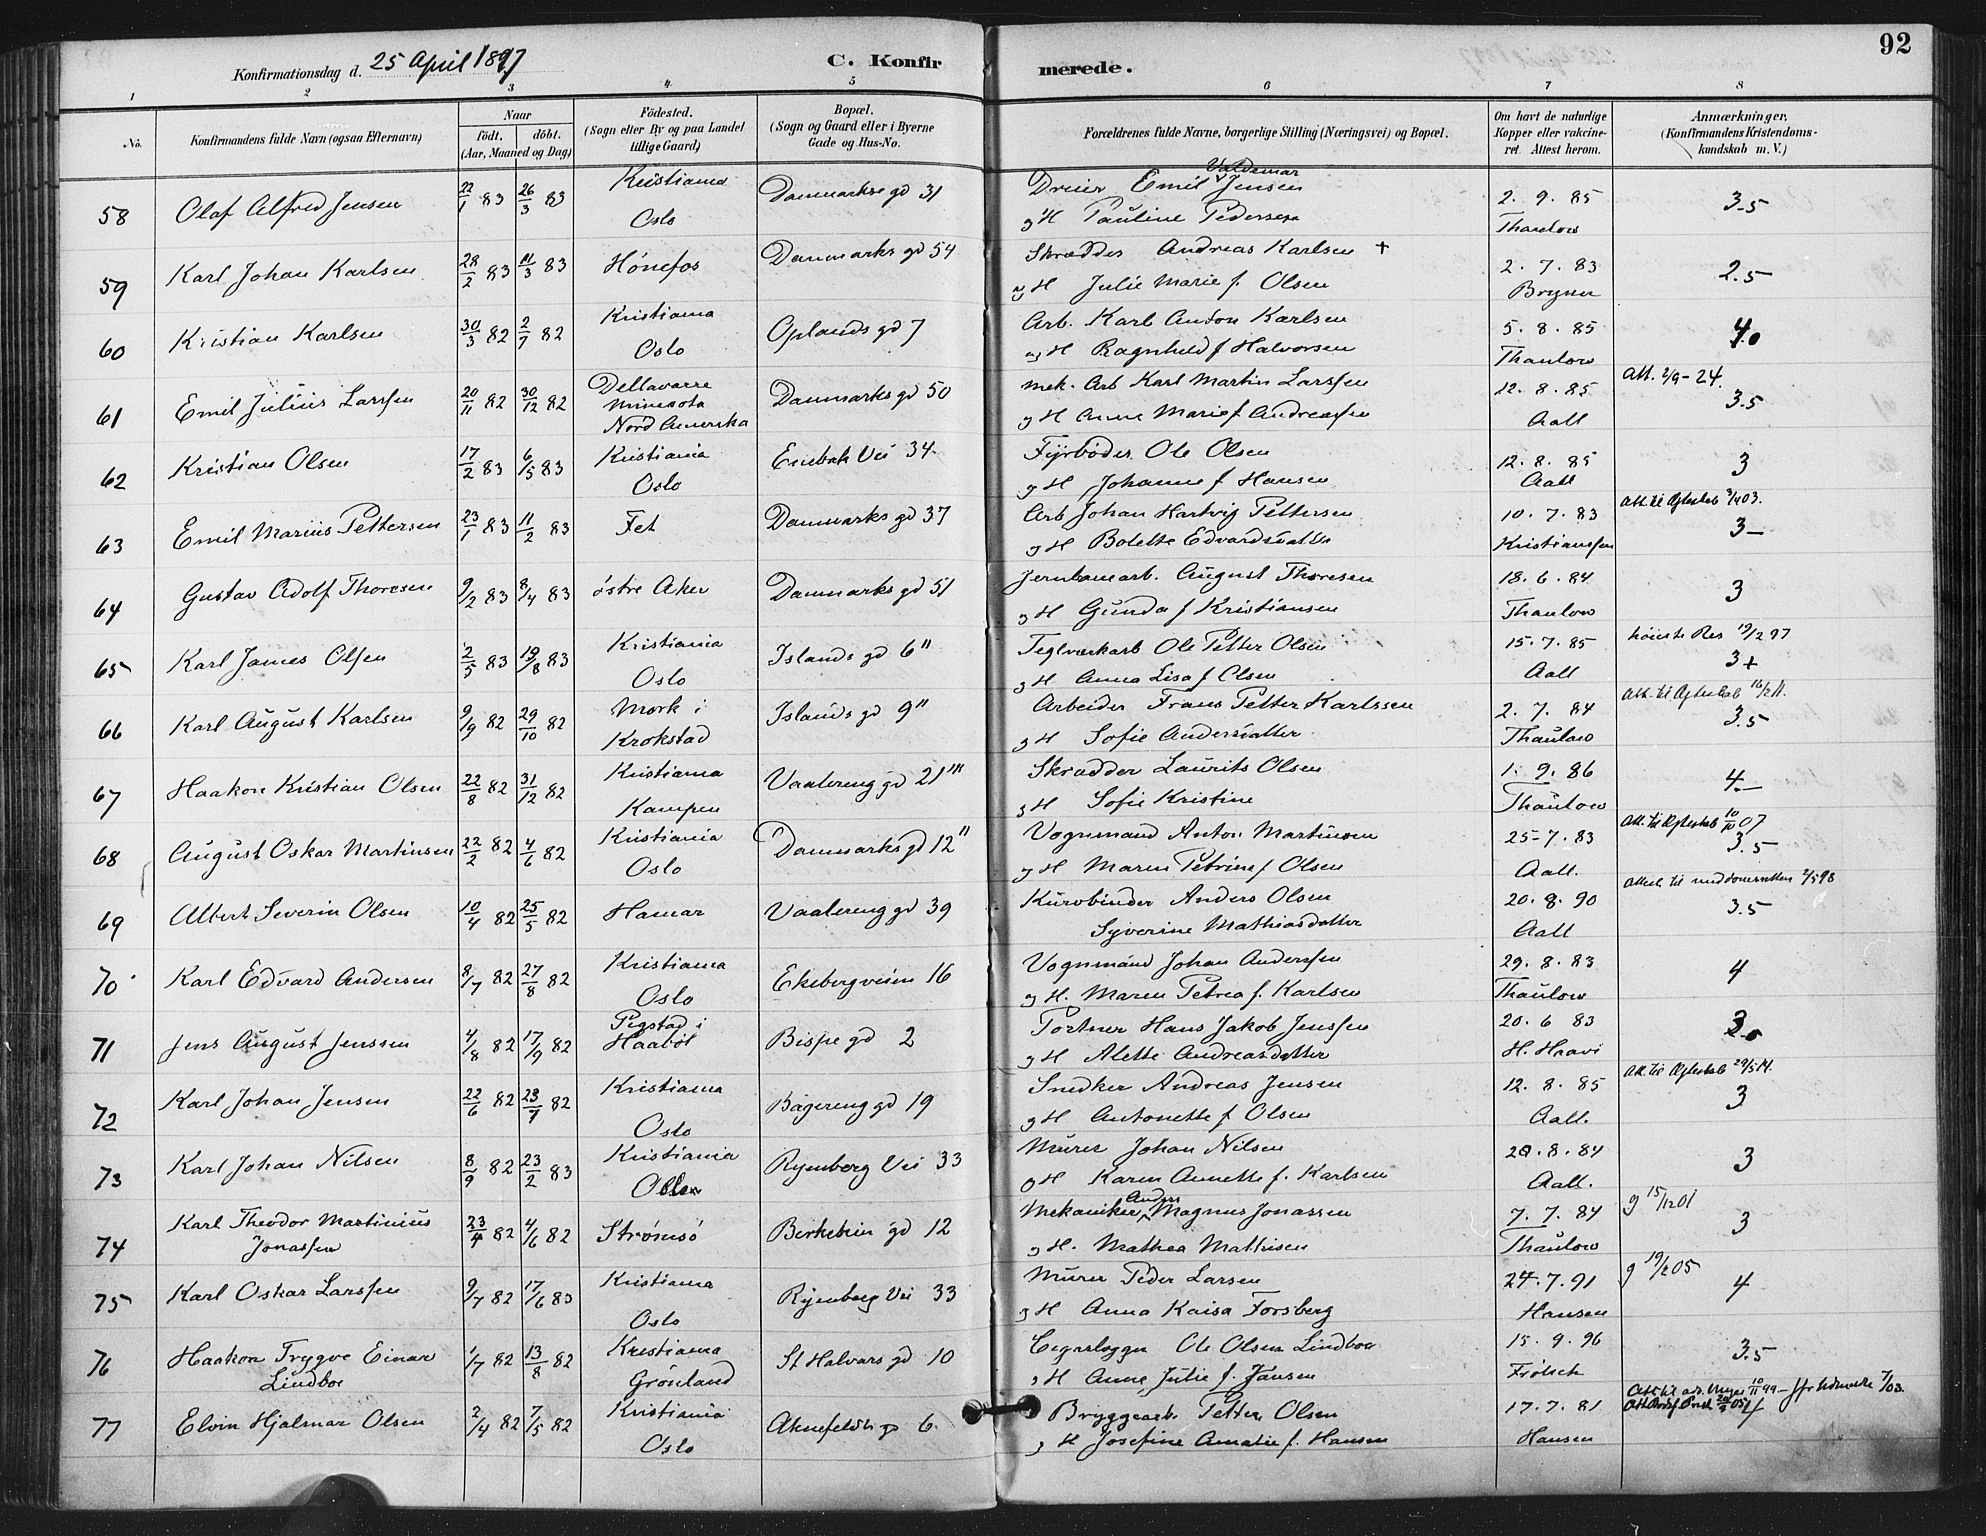 92
Konfirmationsdag d. 25 April 1897
C. Konfirmerede.
1 2 3 4 5 6 7 8
No.
Konfirmandens fulde Navn (ogsaa Efternavn)
Naar
födt. döbt.
(Aar, Maaned og Dag)
Födested.
(Sogn eller By og paa Landet
tillige Gaard)
Bopæl.
(Sogn og Gaard eller i Byerne
Gade og Hus-No.
Forældrenes fulde Navne, borgerlige Stilling (Næringsvei) og Bopæl.
Om havt de naturlige
Kopper eller vakcine-
ret. Attest herom.
Anmærkninger,
(Konfirmandens Kristendoms-
kundskab m. V.)
58 Olaf Alfred Jensen 22/1 83 26/3 83 Kristiania Oslo Danmarks gd 31 Dreier Emil Valdemar Jensen 2. 9. 85 3.5
og H Pauline Pedersen Thaulow
59 Karl Johan Karlsen 28/2 83 11/3 83 Hönefos Danmarks gd 54 Skrædder Andreas Karlsen + 2. 7. 83 2.5
og H Julie Marie f. Olsen
60 Kristian Karlsen 30/3 82 2/7 82 Kristiania Oslo Oplands gd 7 Arb. Karl Anton Karlsen 5. 8. 85 4.0
og H Ragnhild f Halvorsen Thaulow
61 Emil Julius Larssen 20/11 82 30/12 82 Dellavarre Minesota Nord Amerika Danmarks gd 50 mek. Arb Karl Martin Larssen 12. 8. 85 Att. 2/9-24. 3.5
og H Anne Marie f. Andreassen Aall
62 Kristian Olsen 17/2 83 6/5 83 Kristiania Oslo Enebak Vei 34 Fyrböder Ole Olsen 12. 8. 85 3
og H Johanne f Hansen Aall
63 Emil Marius Pettersen 23/1 83 11/2 83 Fet Danmarks gd 37 Arb Johan Hartvig Pettersen 10. 7. 83 Att. til Ægteskab 03. 3-
og H Bolette Edvardsdatter Kristianssen
64 Gustav Adolf Thoresen 9/2 83 8/4 83 östre Aker Danmarks gd 51 Jernbanearb. August Thoresen 18. 6. 84 3
og H Gunda f Kristiansen Thaulow
65 Karl James Olsen 2/5 83 19/8 83 Kristiania Oslo Islands gd 6" Teglværkarb Ole Petter Olsen 15. 7. 85 Res 19/2 97 3+
og H Anna Lisa f Olsen Aall
66 Karl August Karlsen 9/9 82 29/10 82 Mork i Krokstad Islands gd 9" Arbeider Frans Petter Karlssen 2. 7. 84 Att. til Ægteskab 3.5
og H Sofie Andersdatter Thaulow
67 Haakon Kristian Olsen 22/8 82 31/12 82 Kristiania Kampen Vaalereng gd 21"' Skrædder Laurits Olsen 1. 9. 86 4.-
og H Sofie Kristine Thaulow
68 August Oskar Martinsen 22/2 82 4/6 82 Kristiania Oslo Danmarks gd 12" Vognmand Anton Martinsen 25-7. 83 Att. til Ægteskab 10/10 07 3.5
og H Maren Petrine f Olsen Aall.
69 Albert Severin Olsen 10/4 82 25/5 82 Hamar Vaalereng gd 39 Kurvbinder Anders Olsen 20. 8. 90 Attest til meddomsretten 2/5 98 3.5
Syverine Mathiasdatter Aall
70 Karl Edvard Andersen 8/7 82 27/8 82 Kristiania Oslo Ekebergveien 16 Vognmand Johan Anderssen 29. 8. 83 4
og H. Maren Petrea f. Karlsen Thaulow
71 Jens August Jenssen 4/8 82 17/9 82 Pegstad i Haaböl Bispe gd 2 Portner Hans Jakob Jenssen 20. 6 83 3.0
og H Alette Andreasdatter H.
72 Karl Johan Jensen 22/6 82 23/7 82 Kristiania Oslo Bögereng gd 19 Snedker Andreas Jensen 12. 8. 85 Att. til Ægteskab 29/5 14. 3
og H Antonette f. Olsen Aall.
73 Karl Johan Nilsen 8/9 82 23/2 83 Kristiania Oslo Ryenberg Vei 33 Murer Johan Nilsen 20. 8. 84 3
og H Karen Annette f. Karlsen Aall.
74 Karl Theodor Martinius Jonassen 23/4 82 4/6 82 Strömsö Birkebein gd 12 Mekaniker Anders Magnus Jonassen 7. 7. 84 g 15/12 01 3
og H. Mathea Mathisen Thaulow
75 Karl Oskar Larssen 9/7 82 17/6 83 Kristiania Oslo Ryenberg Vei 33 Murer Peder Larsen 24. 7. 91 g 19/2 05 4
og H Anna Kaisa Forsberg Hansen
76 Haakon Trygve Einar Lindboe 1/7 82 13/8 82 Kristiania Grönland St Halvars gd 10 Ole Olsen Lindboe 15. 9. 96 3.5
og H Anne Julie f. Jansen Frölich
77 Elvin Hjalmar Olsen 2/4 82 7/5 82 Kristiania Oslo Aknefeldts g 6. Bryggearb. Petter Olsen 17. 7. 81
og H Josefine Amalie f. Hansen Hansen